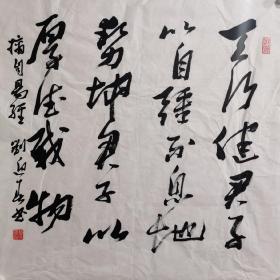 天行健君子
以自强不息地
势坤君子以
厚德载物
摘自易经